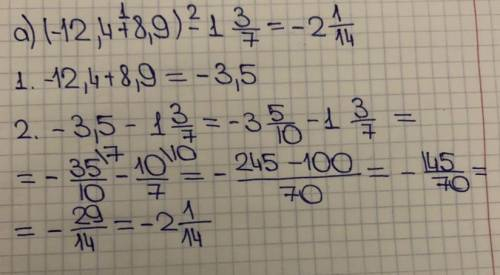 а) (-12,4 +¹ 8,9) -² 1 3/7 = -2 1/14
1. -12,4+8,9 = -3,5
2. -3,5 - 1 3/7 = -3 5/10 - 1 3/7 =
= - 35\7/10 - 10\10/7 = - 245 - 100/70 = - 145/70 =
= - 29/14 = -2 1/14